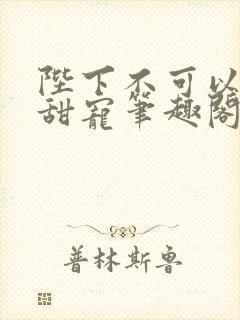 陛下不可以
甜宠笔趣阁
普林斯鲁